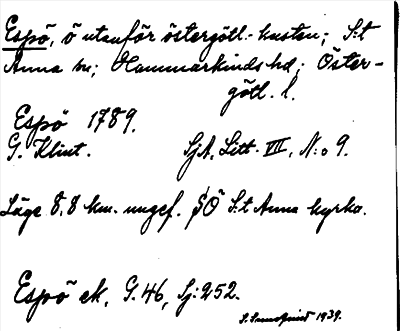 Espö, ö utanför östergötl.-kusten; S:t
Anna sn; Hammarkinds hd; Öster-
götl. l.
Espö 1789.
G. Klint. SjA, Litt. VII, N:o 9.
Läge 8,8 km. ungef. SÖ S:t Anna kyrka.
Espö ek, G. 46, Sj: 252.
1939.